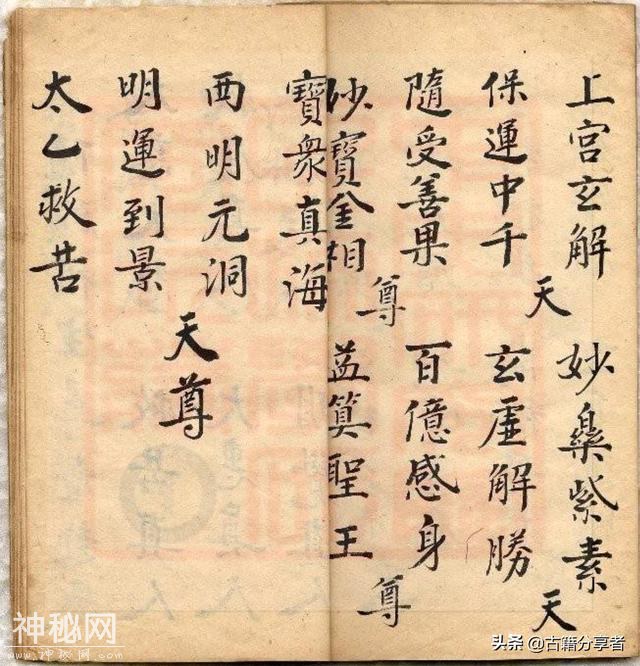 上宫玄解 妙 紫素
天 天
保運中千 玄虛解勝
隨受善果 百億感身
尊 尊
妙寶金相 益筭聖王
寶衆真海
西明元洞
天尊
明運到景
太乙救苦
神秘网
头条 @古籍分享者